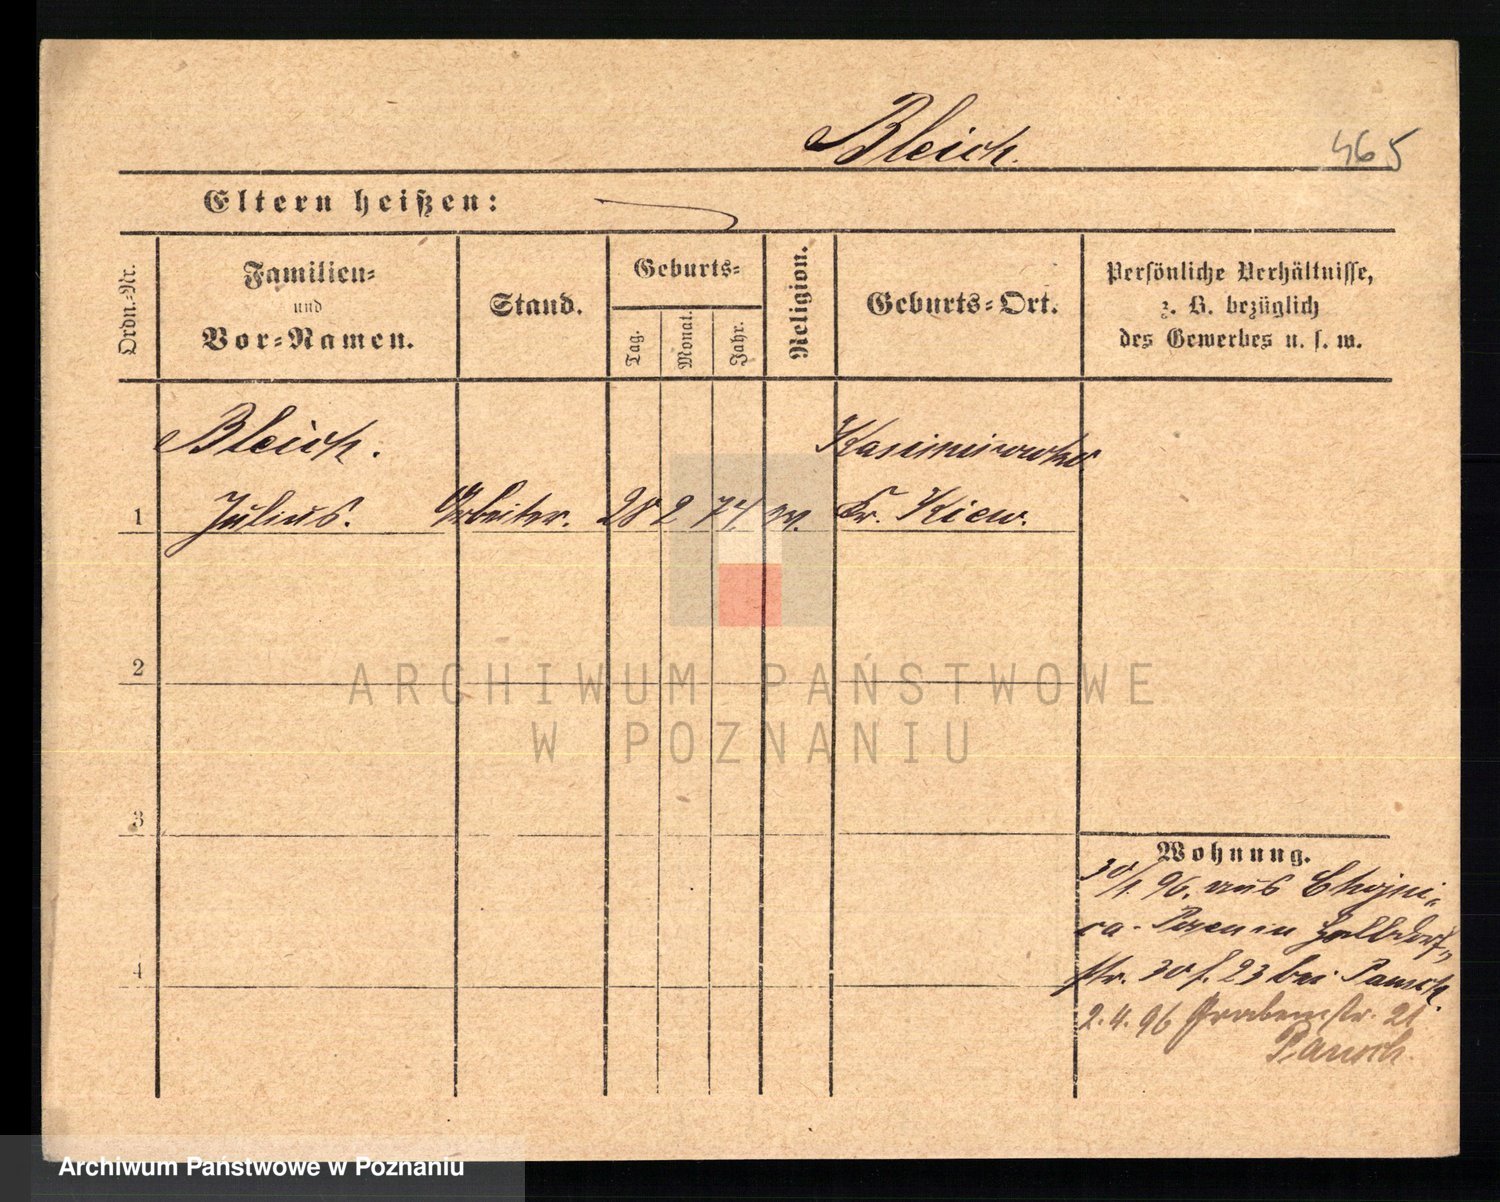 Bleich.
465
Eltern heißen:
Ordn.-Nr.
Familien-
und
Vor-Namen.
Stand.
Geburts-
Tag.
Monat.
Jahr.
Religion.
Geburts-Ort.
Persönliche Verhältnisse,
z. B. bezüglich
des Gewerbes u. s. w.
Bleich.
Kasimirowka
1 Julius. Arbeiter. 28 2 74 ev. Kr. Kiew.
2
ARCHIWUM PAŃSTWOWE
W POZNANIU
3
Wohnung.
30/1. 96. aus Chojni-
ca. Posen in Halbdorf-
4
str. 30 f. 23 bei Pausch.
2.4.96 Grabenstr. 21.
Pausch.
Archiwum Państwowe w Poznaniu